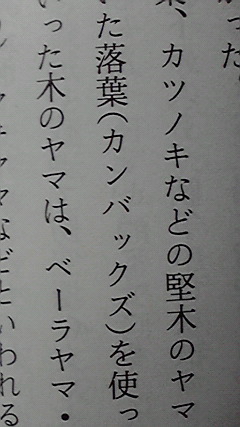 った
葉、カツノキなどの堅木のヤマ
いた落葉(カンバックズ)を使っ
いった木のヤマは、ベーラヤマ・
ヤマなどといわれる